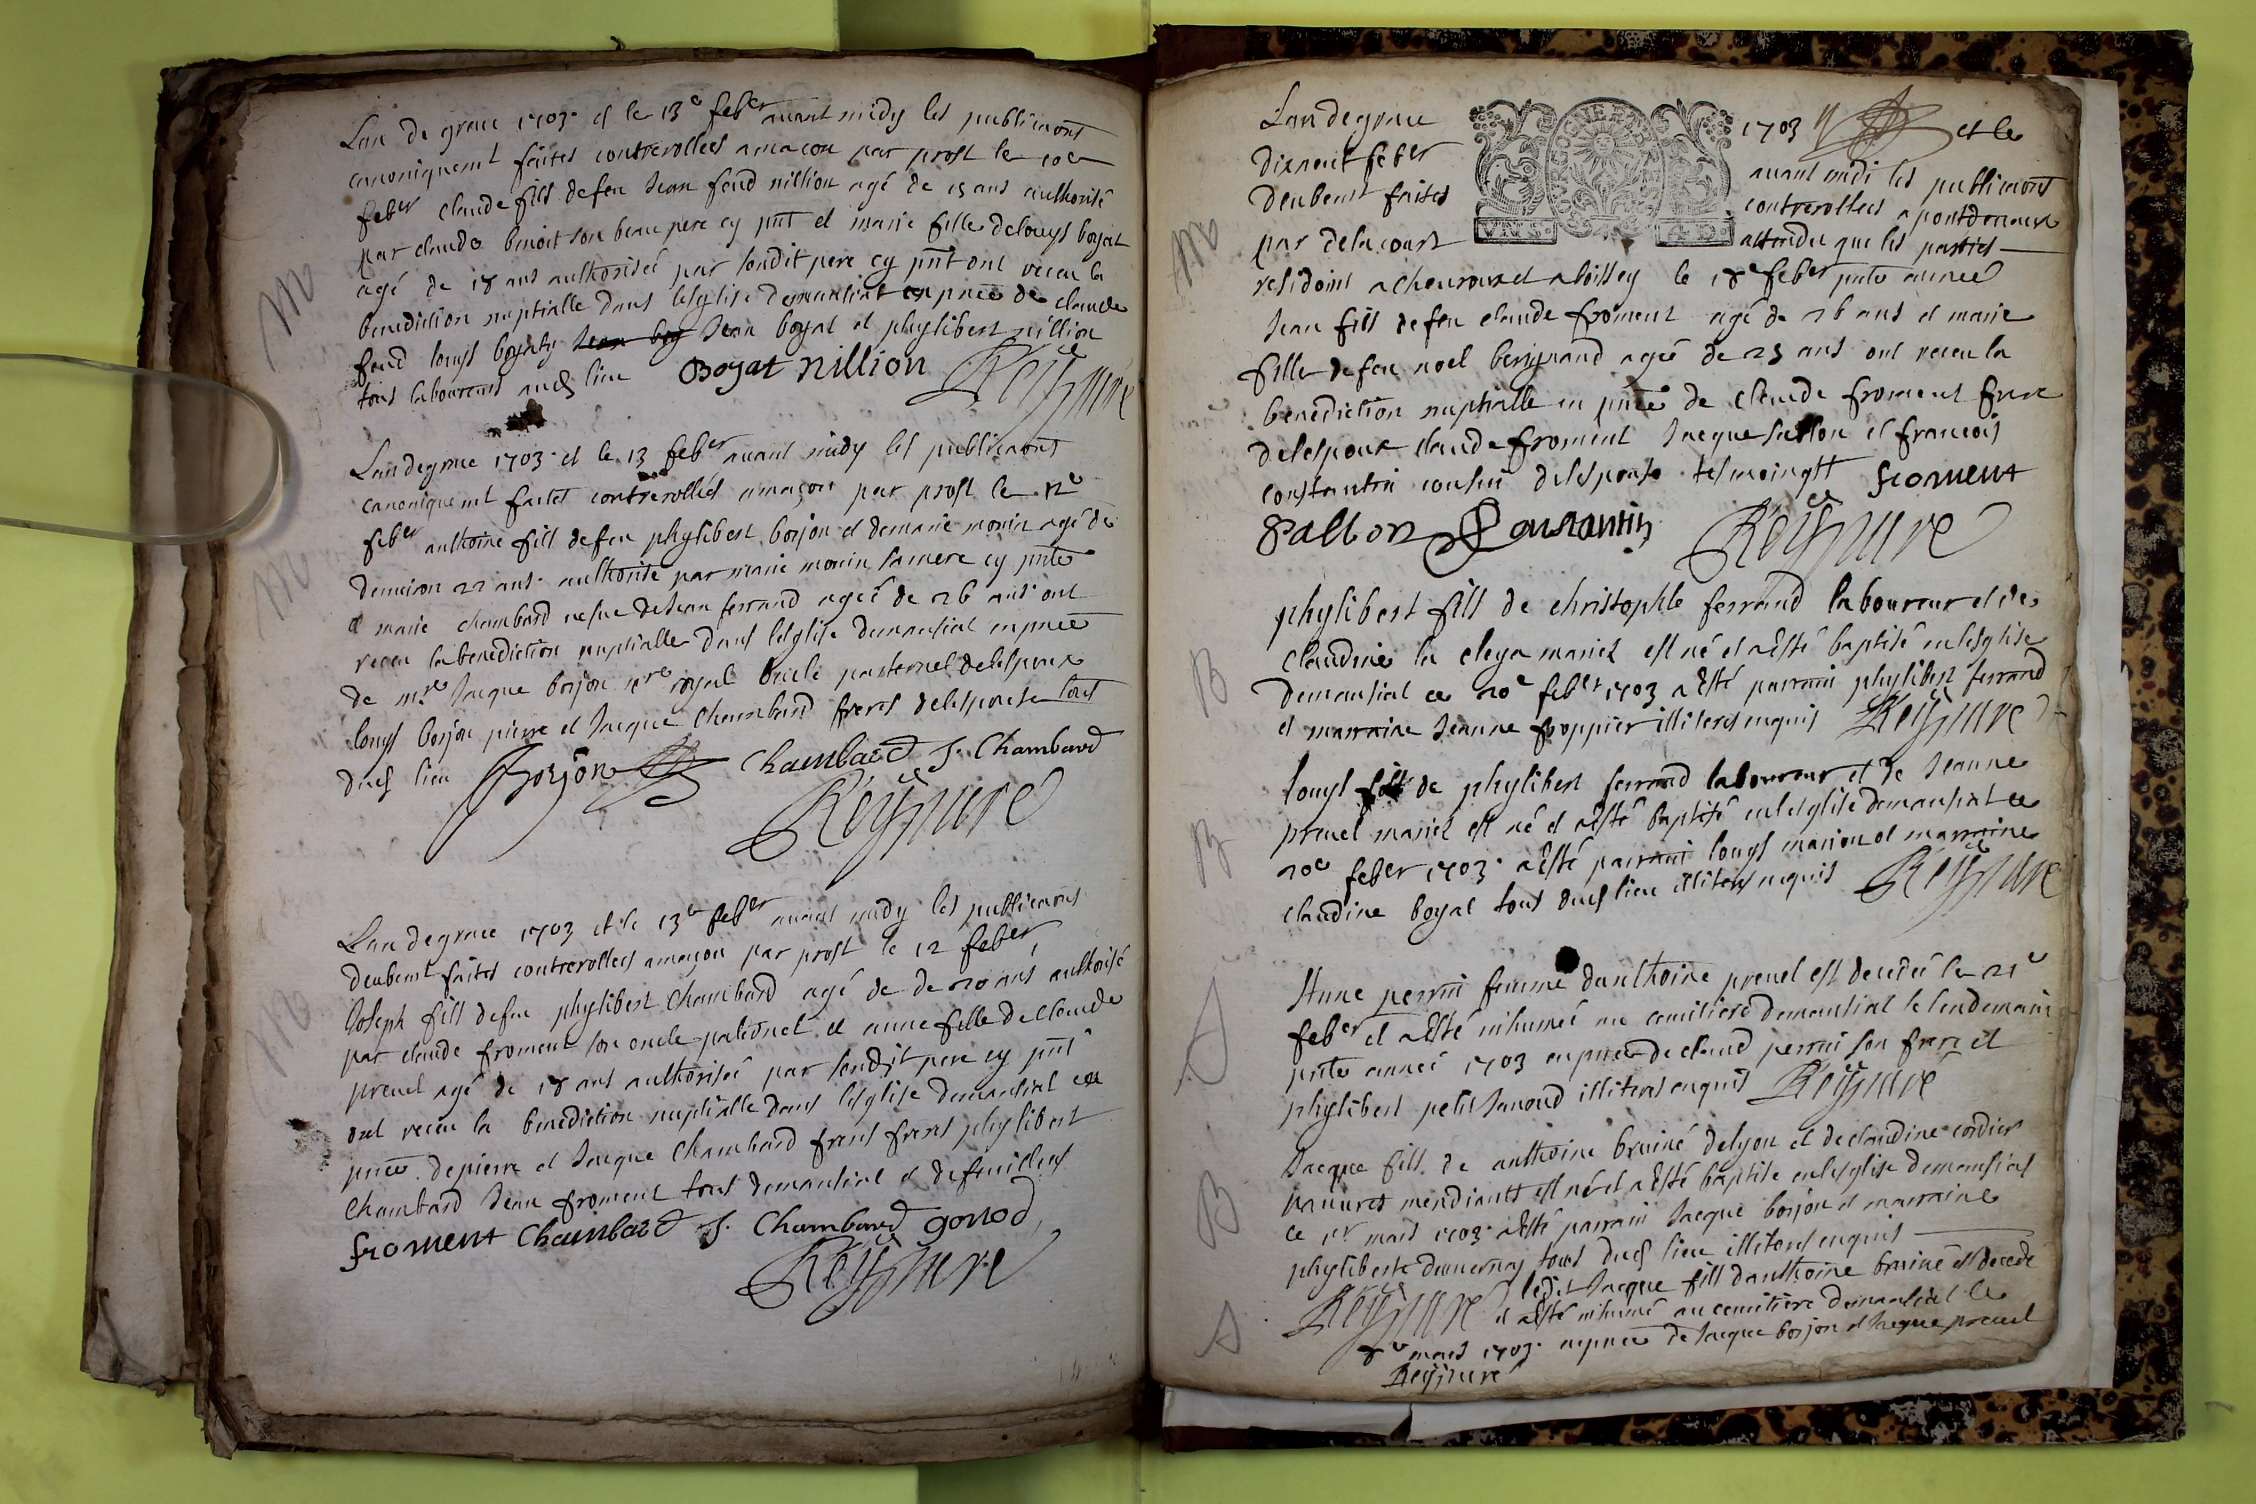 M
Lan de grace 1703 et le 13e feber avant midy les publicaons
canoniquemt faites controrollees a macon par prost le 10e
feber claude fils de feu Jean feud nillion agé de 15 ans authorisé
par claude benoit son beau pere cy pnt et marie fille de louys boyat
agé de 18 ans authorisée par sondit pere cy pnt ont receu la
benediction nuptialle dans lesglise demansiat en pnce de claude
feud louys boyat Jean boyat et phylibert nillion
tous laboureurs aud lieu Boyat nillion Reyssure
M
Lan de grace 1703 et le 13 feber avant midy les publicaons
canoniquemt faites controrollées a maçon par prost le 12e
feber anthoine fils de feu phylibert borjon et de marie monin agé de
denviron 22 ans authorisé par marie monin sa mere cy pnte
et marie chambard de Jean ferrand agée de 26 ans ont
receu la benediction nuptialle dans lesglise demansiat en pnce
de mre Jacque borjon nre royal oncle paternel de lespoux
louys borjon pierre et Jacque Chambard freres de lespouse tous
dud lieu Borjon Chambard J. Chambard
Reyssure
M
Lan de grace 1703 et le 13e feber avant midy les publicaons
deubemt faites controrollees a maçon par prost le 12 feber
Joseph fils de feu phylibert Chambard agé de de 20 ans authorisé
par claude froment son oncle paternel et anne fille de claude
prevel agé de 18 ans authorisée par sondit pere cy pnt
ont receu la benediction nuptialle dans lesglise demansiat en
pnce de pierre et Jacque Chambard freres freres phylibert
Chambard Jean froment tous demansiat et de feuillens
froment Chambard J. Chambard gonod
Reyssure
M
Lan de grace 1703 et le
dixneuf feber avant midi les publicaons
deubemt faites controrollees a pontdevaux
par delacourt attendu que les parties
residoint a chevroux et a boissey le 18e feber pnte année
Jean fils de feu claude froment agé de 26 ans et marie
fille de feu noel berignand agée de 25 ans ont receu la
benediction nuptialle en pnce de claude froment frere
de lespoux claude froment Jacque sallon et francois
constantin cousin de lespouse tesmoings froment
Sallon Constantin Reyssure
B
phylibert fils de christophle ferrand laboureur et de
claudine la cleya mariez est né et a esté baptisé en lesglise
demansiat ce 20e feber 1703 a esté parrain phylibert ferrand
et marraine Jeanne froppier illiteres enquis Reyssure
B
louys fils de phylibert ferrand laboureur et de Jeanne
prevel mariez est né et a esté baptisé en lesglise demansiat ce
20e feber 1703 a esté parrain louys marion et marraine
claudine boyat tous dud lieu illiteres enquis Reyssure
S
Anne perrin femme danthoine prevel est decedée le 21e
feber et a esté inhumée au cemitiere demansiat le lendemain
pnte année 1703 en pnce de claud perrin son frere et
phylibert petit Janoud illiteres enquis Reyssure
B
Jacque fils de anthoine brainé de lyon et de claudine cordier
pauvres mendiants est né et a esté baptise en lesglise demansiat
ce 1er mars 1703 a esté parrain Jacque borjon et marraine
phyliberte duvernay tous dud lieu illiteres enquis
S
Reyssure ledit Jacque fils danthoine brainé est decedé
et a esté inhumé au cemitiere demansiat le
8e mars 1703 en pnce de Jacque borjon et Jacque prevel
Reyssure